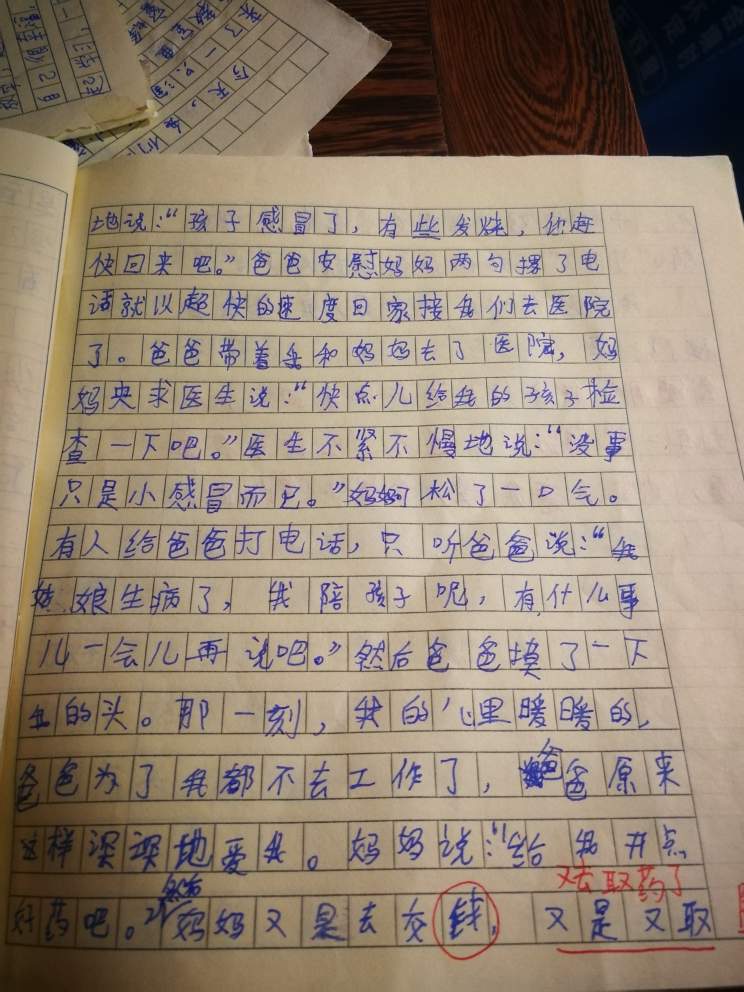 地说:“孩子感冒了,有些发烧,你赶
快回来吧。”爸爸安慰妈妈两句撂了电
话就以超快的速度回家接我们去医院
了。爸爸带着我和妈妈去了医院,妈
妈央求医生说:“快点儿给我的孩子检
查一下吧。”医生不紧不慢地说:“没事
只是小感冒而已。”妈妈松了一口气。
有人给爸爸打电话,只听爸爸说:“我
姑娘生病了,我陪孩子呢,有什么事
儿一会儿再说吧。”然后爸爸摸了一下
我的头。那一刻,我的心里暖暖的,
爸爸为了我都不去工作了,爸爸原来
这样深深地爱我。妈妈说:“给我开点
又去取药了
然后
好药吧。”妈妈又是去交钱,又是又取